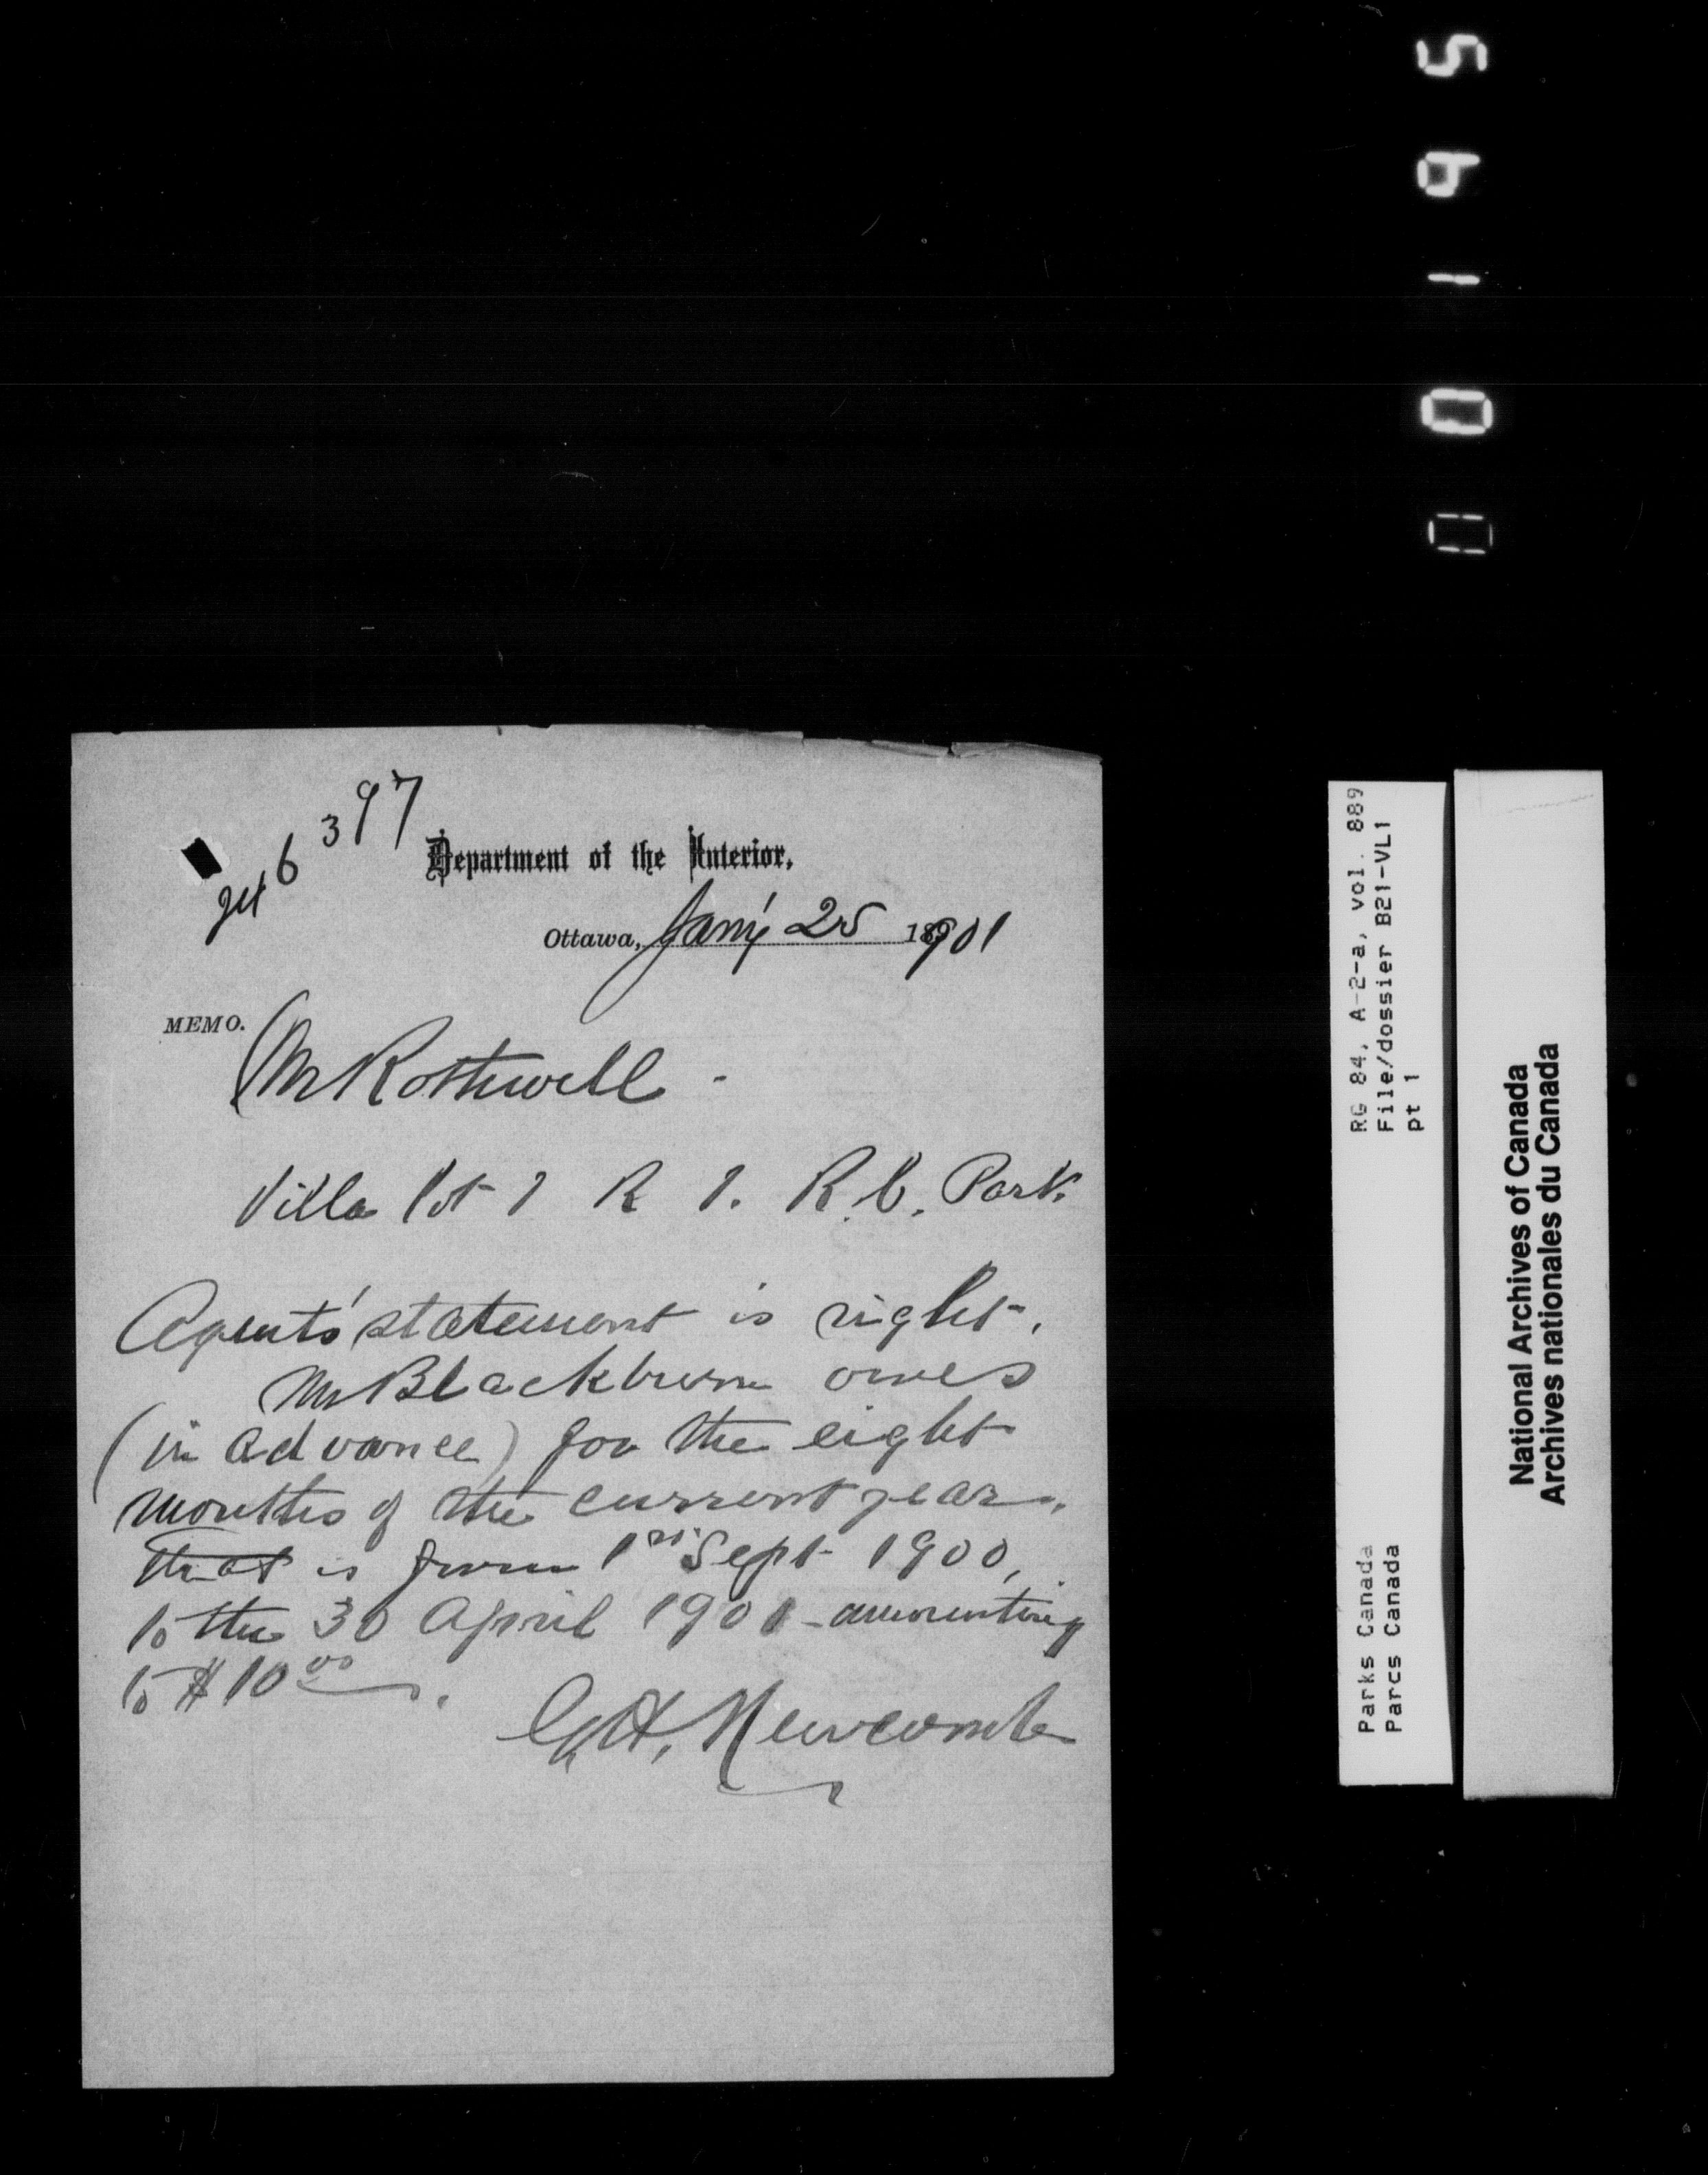 6397
Department of the Interior.
Ottawa, Jan'y 25 1901
MEMO.
Mr Rothwell -
Villa lot 1 R 1. R.C. Park.
Agents' statement is right.
Mr Blackburn owes
(in advance) for the eight
months of the current year.
That is from 1st Sept 1900,
to the 30 April 1901 - amounting
to $10 00.
G.H. Newcomb
00195
RG 84, A-2-a, vol. 889
File/dossier B21-VL1
pt 1
Parks Canada
Parcs Canada
National Archives of Canada
Archives nationales du Canada